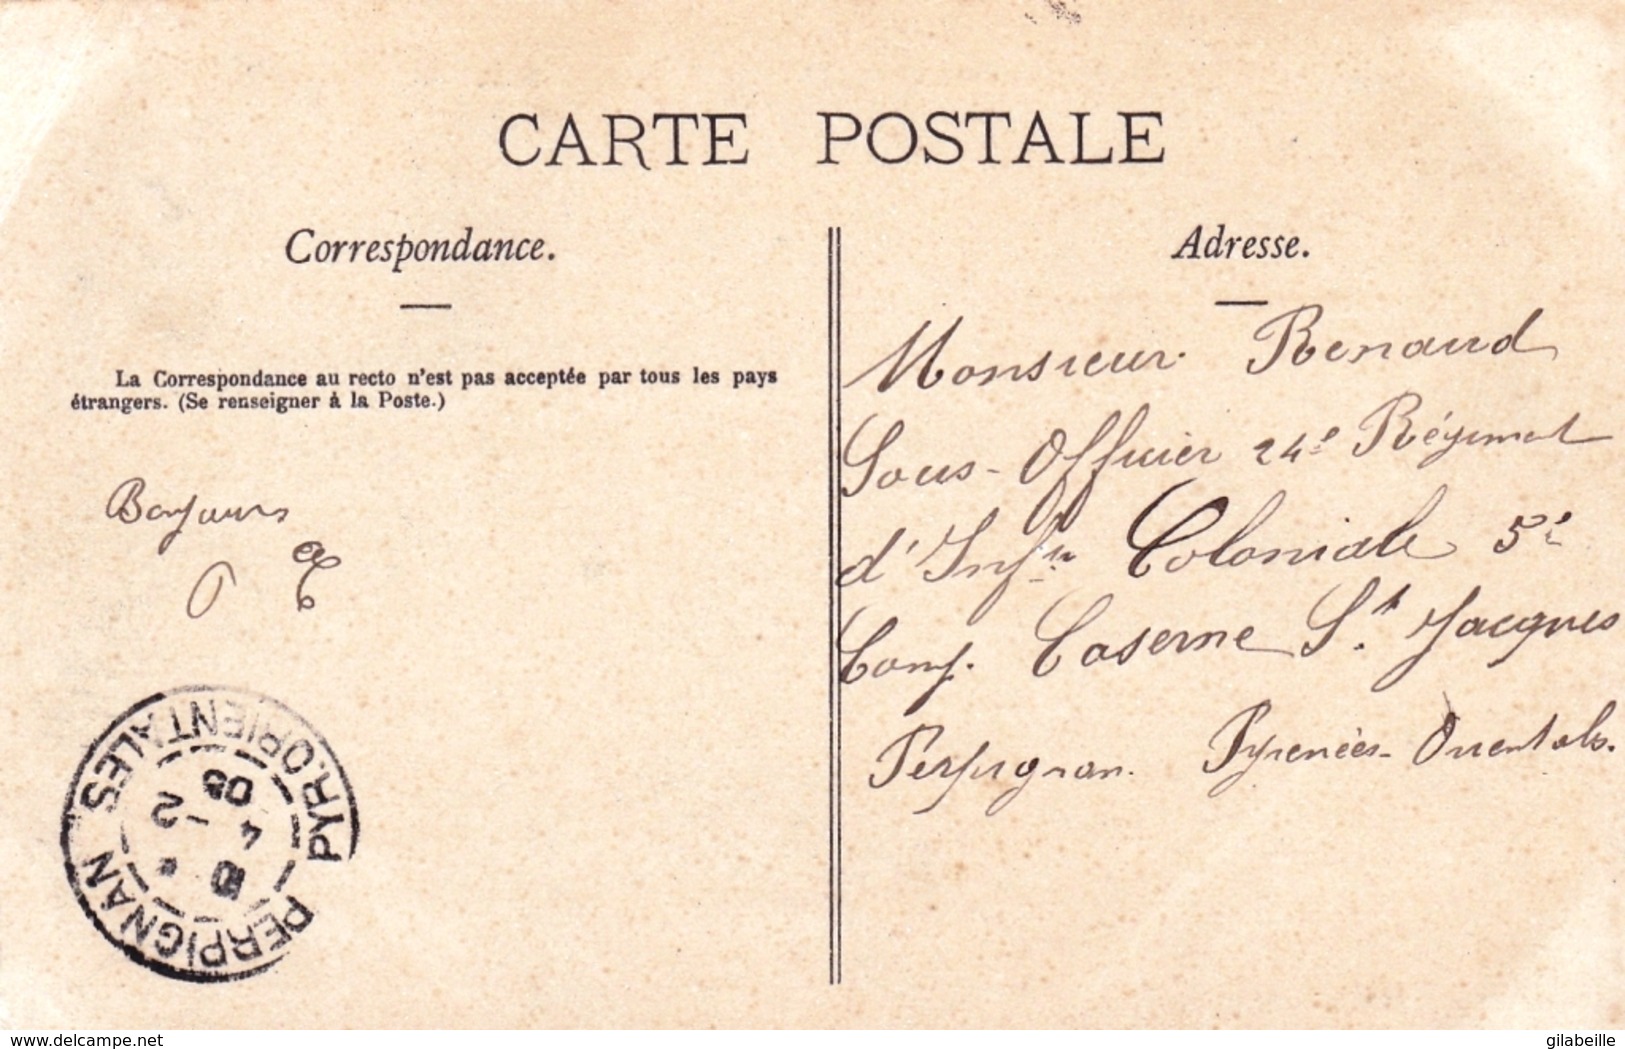 CARTE POSTALE
Correspondance.
La Correspondance au recto n'est pas acceptée par tous les pays
étrangers. (Se renseigner à la Poste.)
Bonjours
Adresse.
Monsieur Renaud
Sous-Officier 24e Régiment
d'Infie Coloniale 5e
Comp. Caserne St Jacques
Perpignan. Pyrenées-Orientals.
PERPIGNAN
PYR. ORIENTALES
4 -2
05
www.delcampe.net
gilabeille